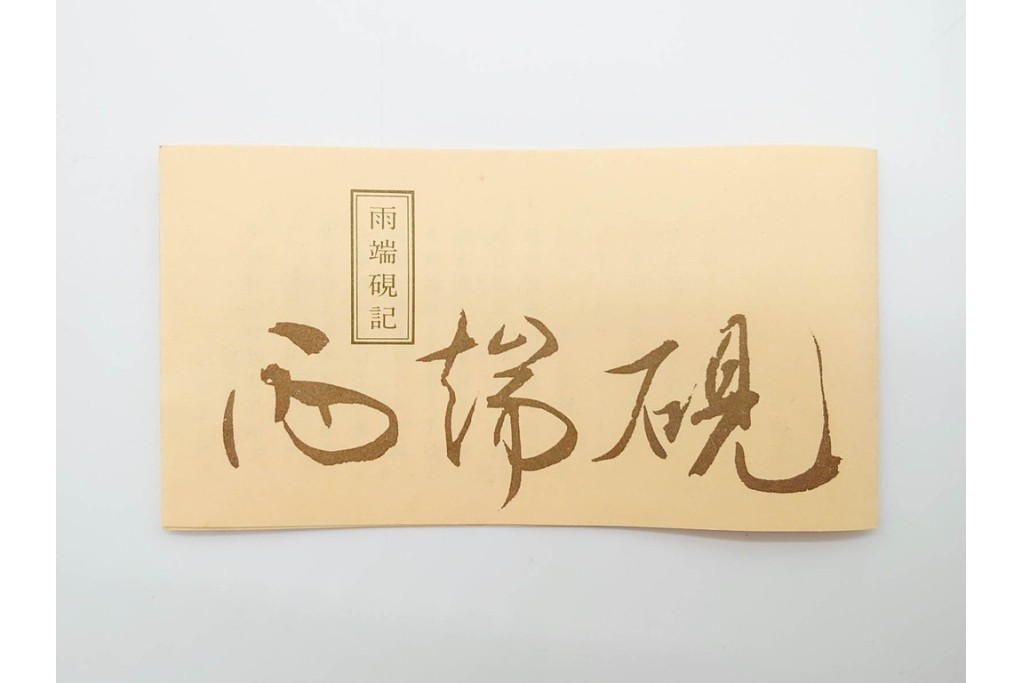 雨端硯記
雨端硯